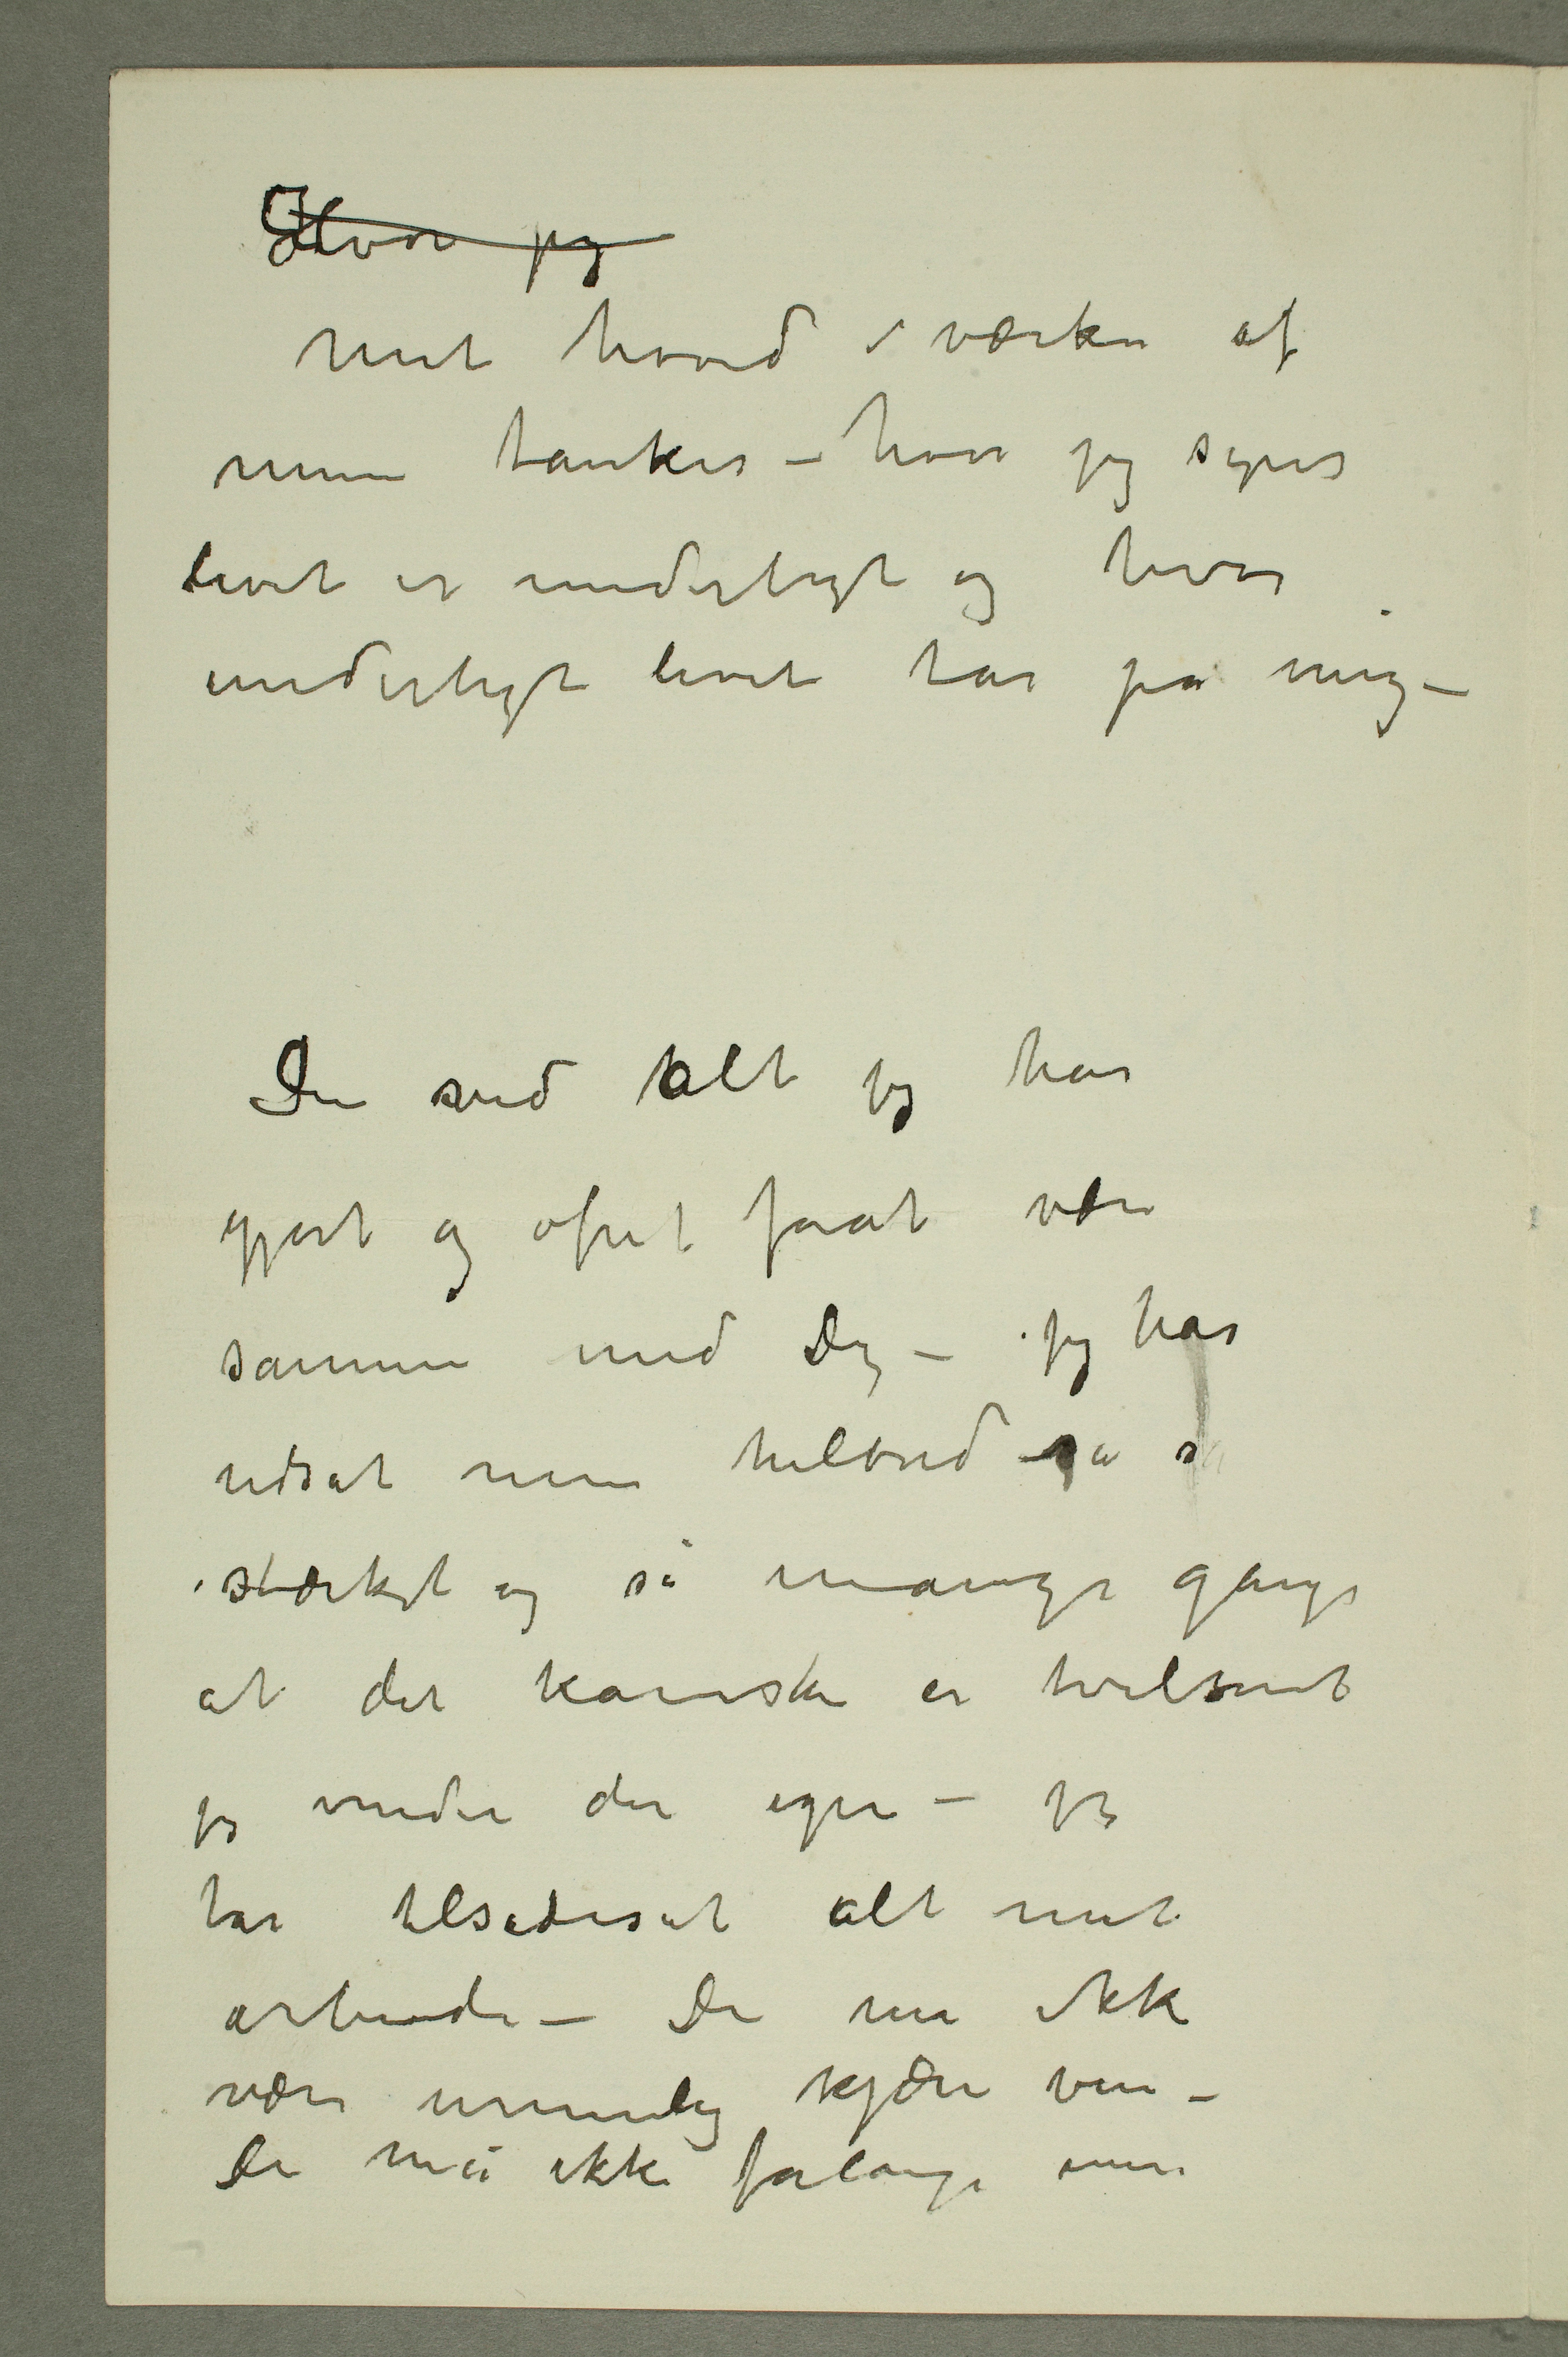 Hvor jeg
Mit hoved værker af
mine tanker – hvor jeg synes
livet er underligt og hvor
underligt livet tar på mig –
Du ved alt jeg har
gjort og ofret forat være
sammen med Dig – jeg har
udsat min helbred så s
stærkt og så mange gange
at det kanske er tvilsomt
jeg vinder det igjen – jeg
har tilsidesat alt mit
arbeide – Du må ikke
være urimelig kjære ven –
Du må ikke forlange mere